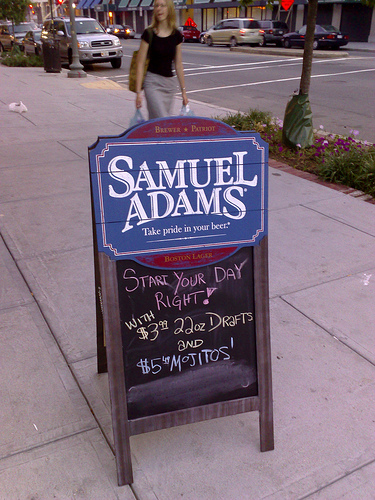 BREWER ★ PATRIOT
SAMUEL
ADAMS®
Take pride in your beer.®
BOSTON LAGER
START YOUR DAY
RIGHT!
WITH
$3.99 22oz DRAFTS
AND
$5.49 MOJITOS!